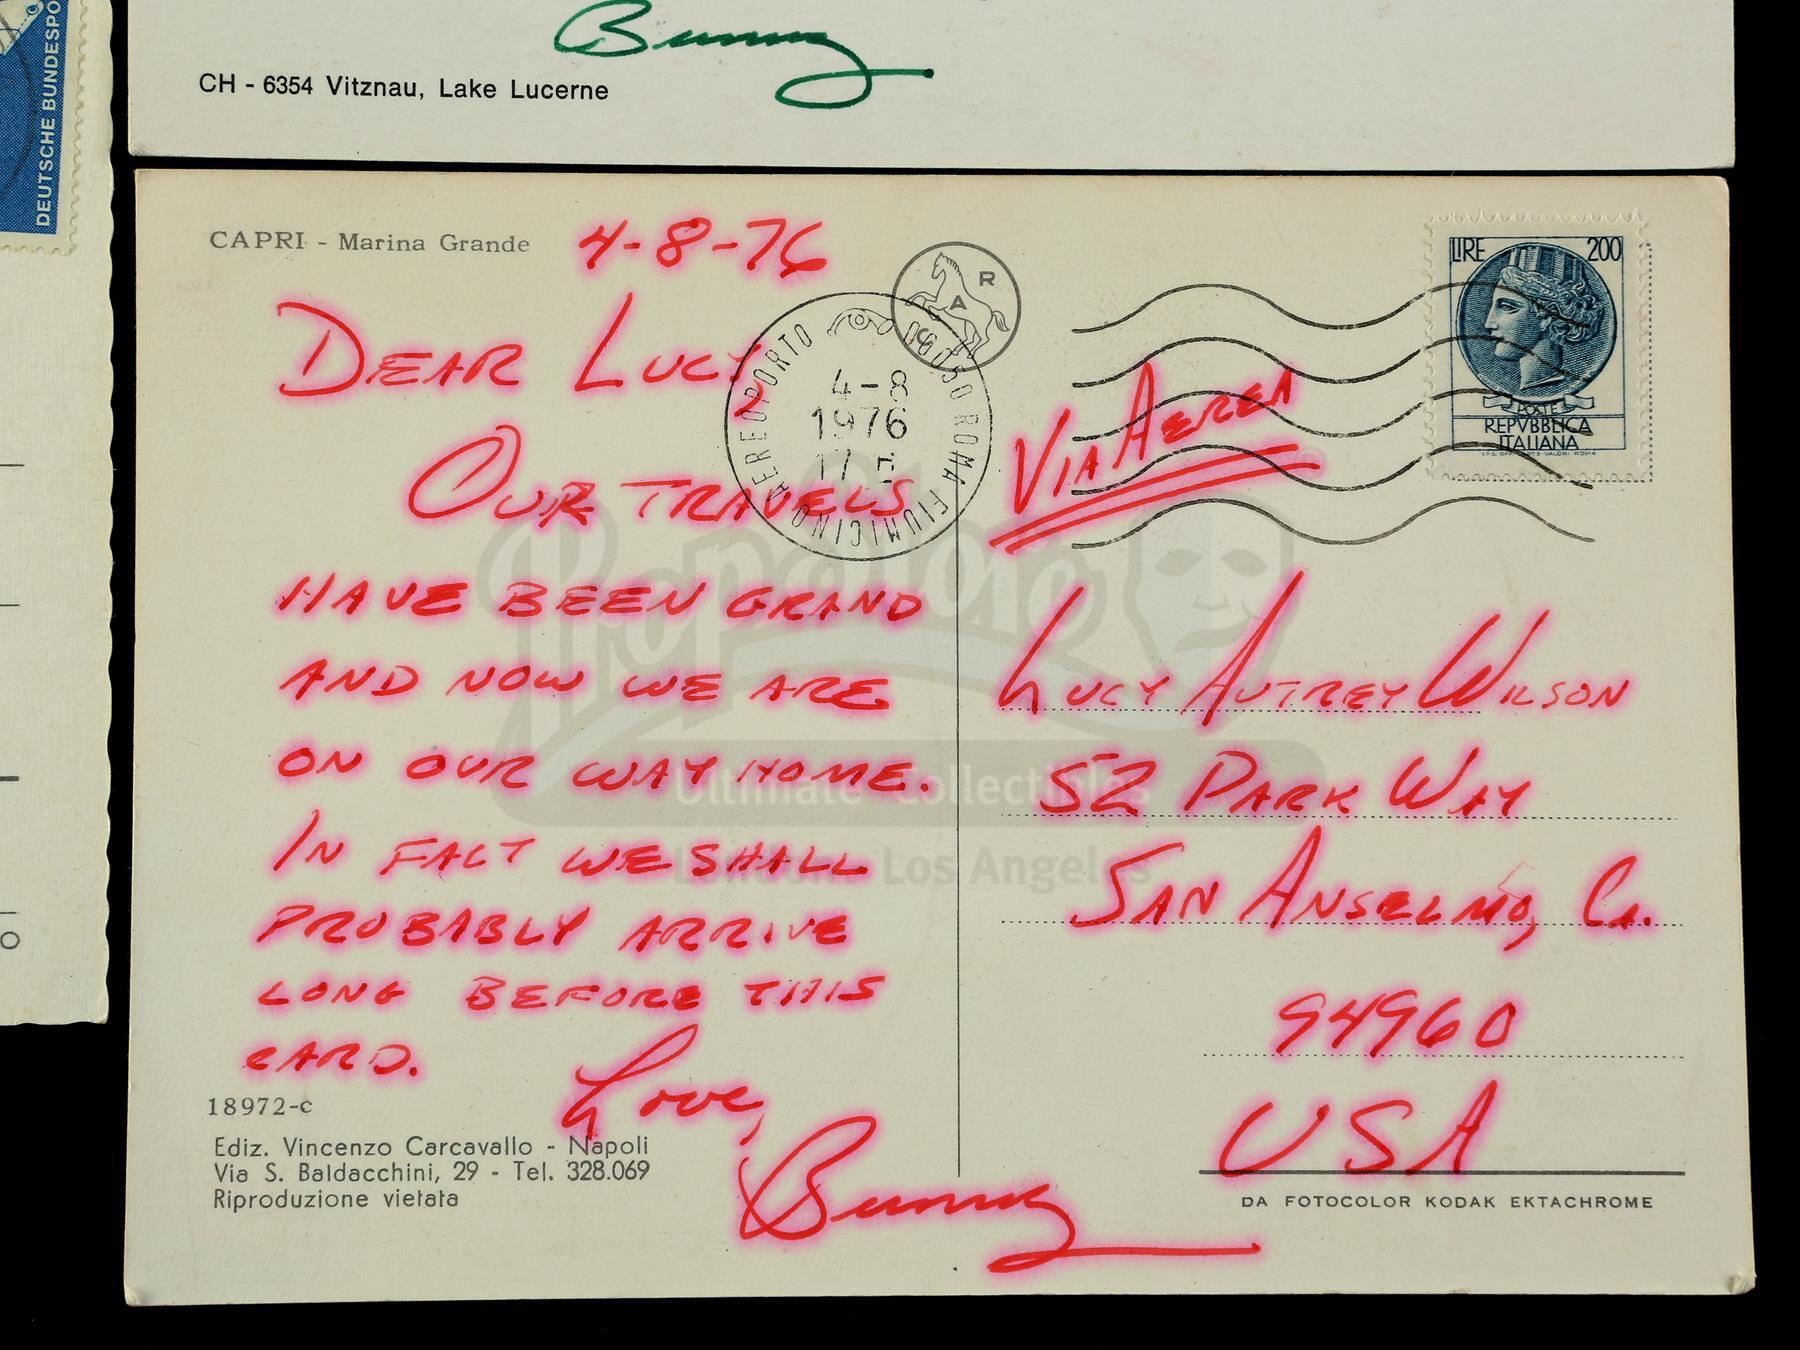 DEUTSCHE BUNDESPO
Bunny
CH - 6354 Vitznau, Lake Lucerne
CAPRI - Marina Grande
4-8-76
DEAR LUCY
OUR TRAVELS
HAVE BEEN GRAND
AND NOW WE ARE
ON OUR WAY HOME.
IN FACT WE SHALL
PROBABLY ARRIVE
LONG BEFORE THIS
CARD.
Love,
Bunny
18972-c
Ediz. Vincenzo Carcavallo - Napoli
Via S. Baldacchini, 29 - Tel. 328.069
Riproduzione vietata
R
A
AEREOPORTO
ROMA FIUMICINO
4-8
1976
17
LIRE 200
POSTE
REPVBBLICA
ITALIANA
VIA AEREA
LUCY AUTREY WILSON
52 PARK WAY
SAN ANSELMO, CA.
94960
USA
DA FOTOCOLOR KODAK EKTACHROME
Propstore
Ultimate Collectibles
London Los Angeles